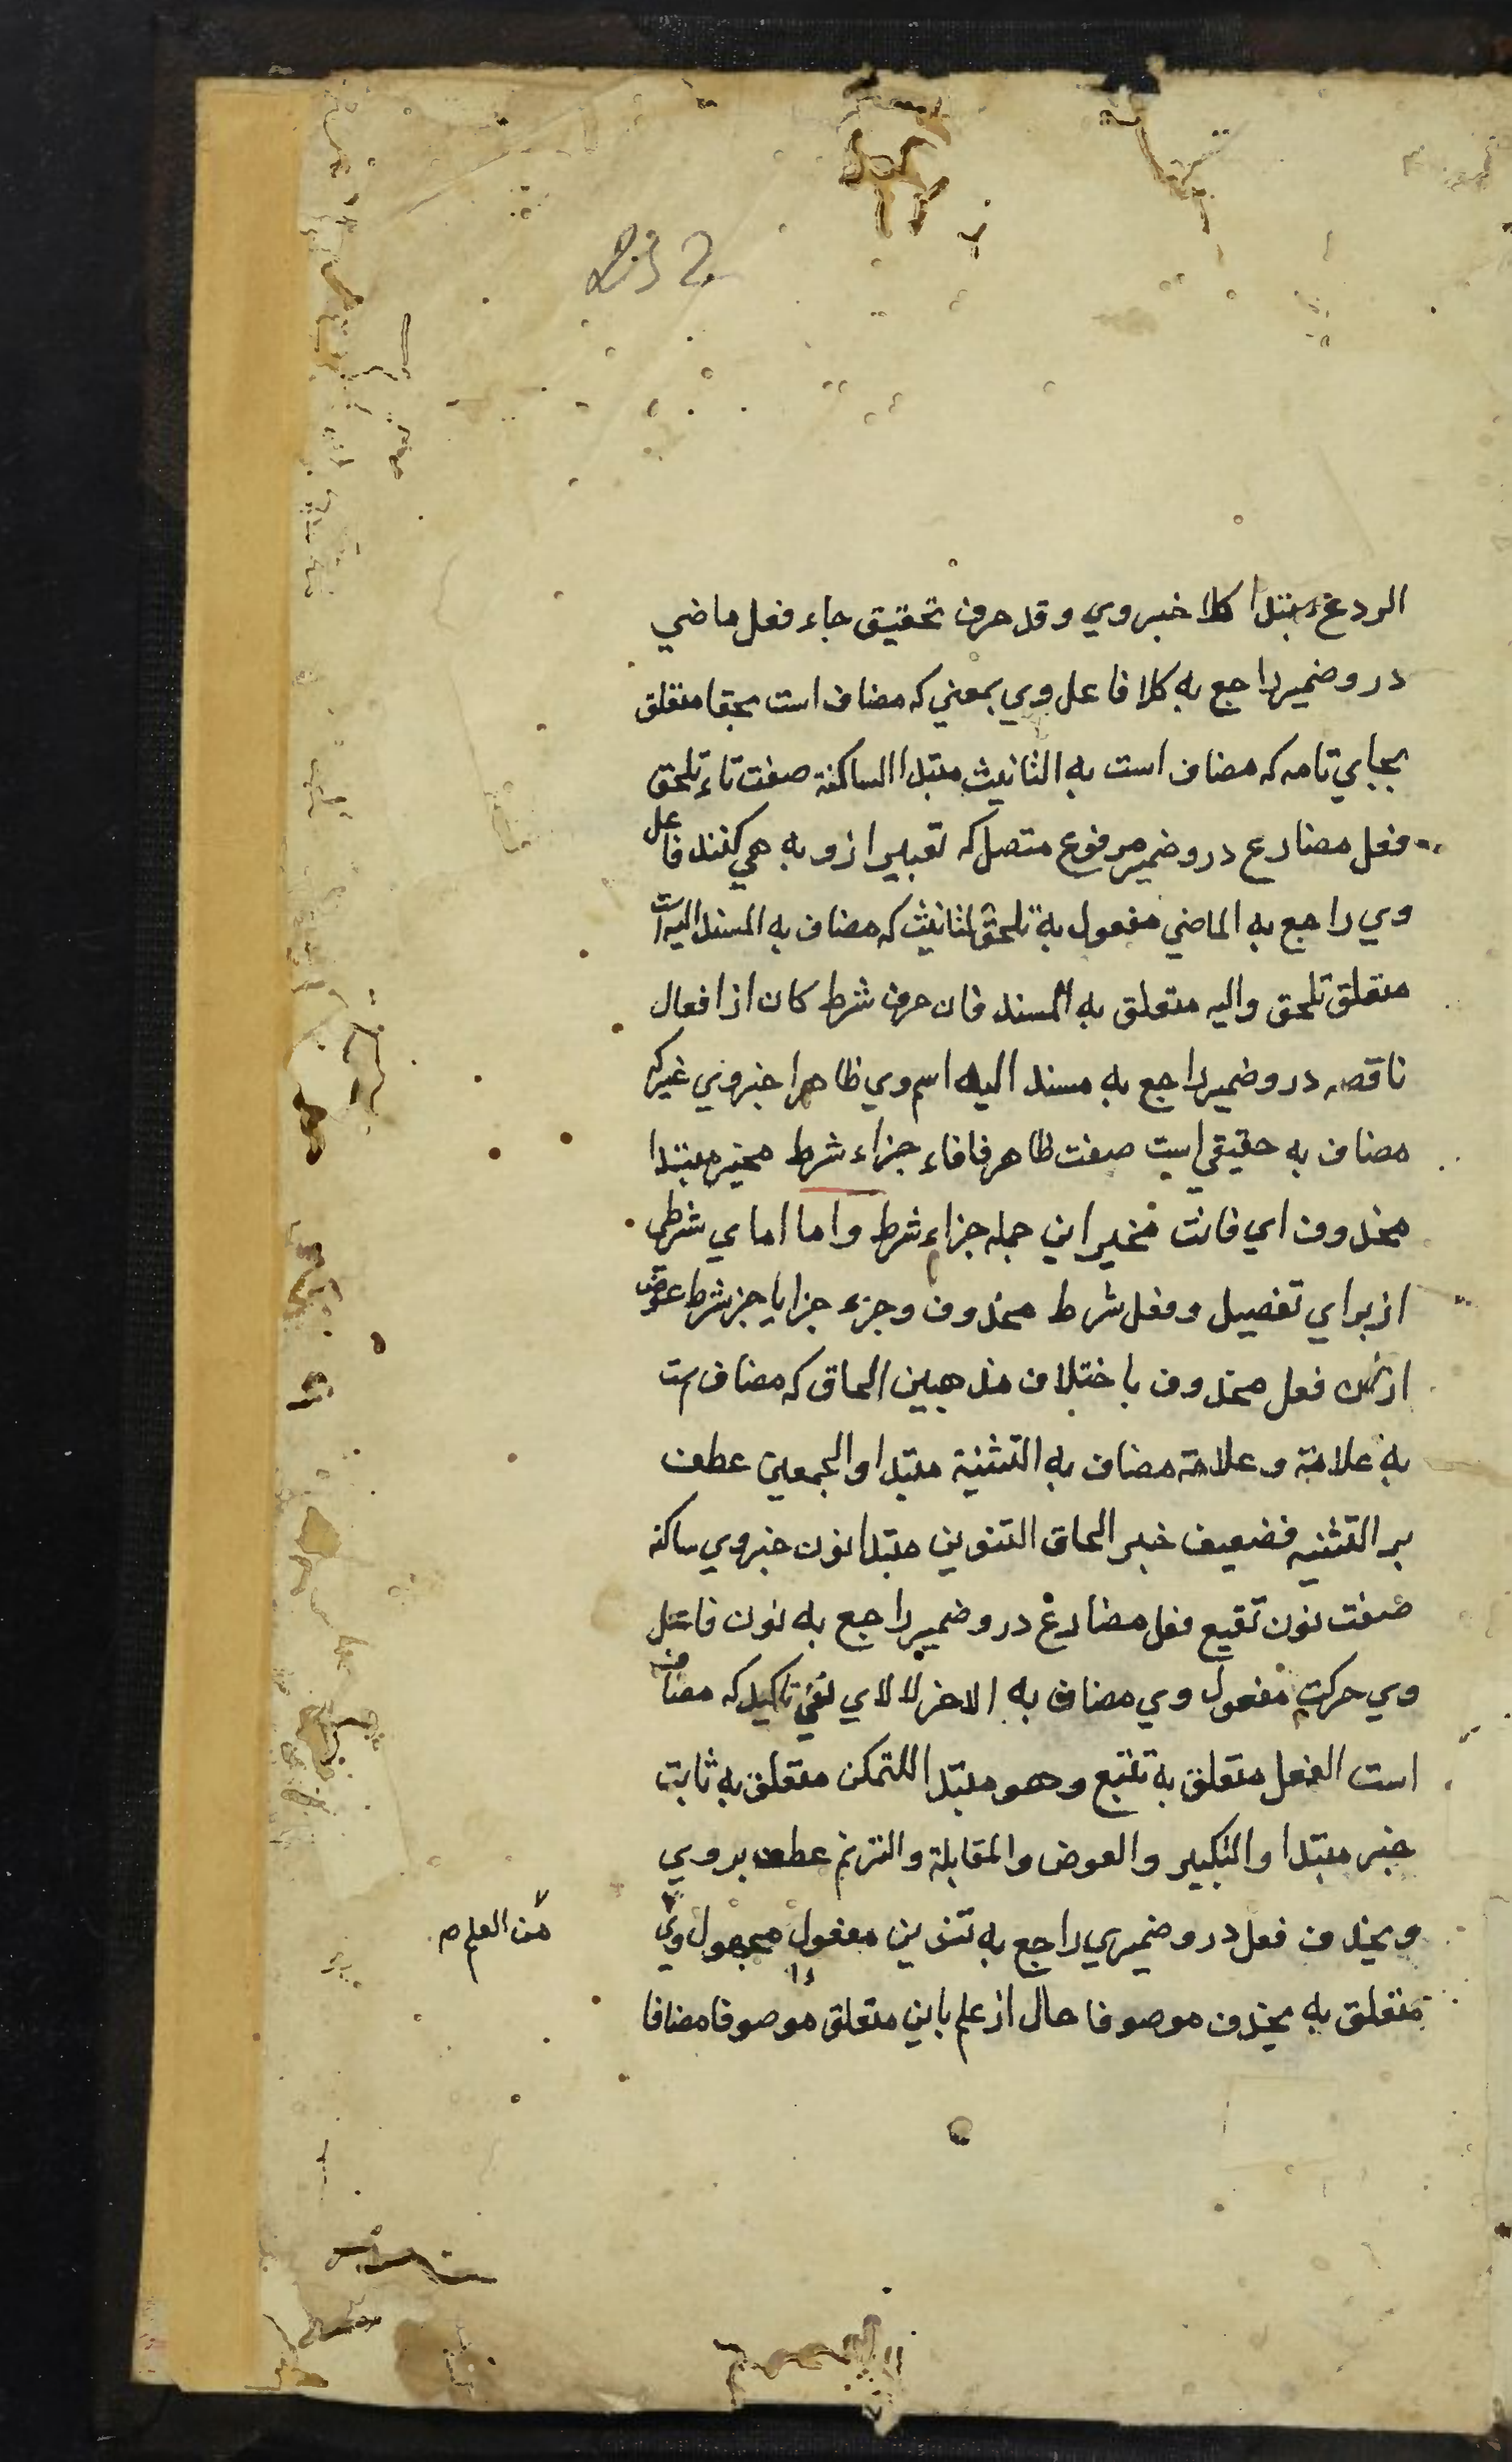 232
الردع مبتدا كلا خبر وي وقد حرف تحقيق جاء فعل ماضي
درو ضمير راجع به كلا فاعل وي بمعني كه مضاف است بحقا متعلق
بجاي تامه كه مضاف است به التانيث مبتدا الساكنة صفت تاء تلحق
فعل مضارع درو ضمير مرفوع متصل كه تعبير ازو به هي كنند فاعل
وي راجع به الماضي مفعول به تلحق لتانيث كه مضاف به المسند اليه است
متعلق تلحق واليه متعلق به المسند فان حرف شرط كان از افعال
ناقصه درو ضمير راجع به مسند اليه اسم وي ظاهرا خبر وي غير كه
مضاف به حقيقي است صفت ظاهر فا فاء جزاء شرط مخير مبتدا
محذوف اي فانت مخير اين جمله جزاء شرط واما اماي شرطي
از براي تفصيل وفعل شرط محذوف وجزء جزا يا جز شرط عوض
از فعل محذوف باختلاف مذهبين الحاق كه مضاف است
به علامة وعلامة مضاف به التثنية مبتدا والجمعين عطف
بر التثنيه فضعيف خبر الحاق التنوين مبتدا نون خبر وي ساكنة
صفت نون تتبع فعل مضارع درو ضمير راجع به نون فاعل
وي حركت مفعول وي مضاف به الاخر لا لاي نفي تاكيد كه مضاف
است الفعل متعلق به تتبع وهو مبتدا للتمكن متعلق به ثابت
خبر مبتدا والتنكير والعوض والمقابلة والترنم عطف بروي
ويحذف فعل درو ضميري راجع به تنوين مفعول مجهول وي
من العلم
متعلق به يحذف موصوفا حال از علم بابن متعلق موصوفا مضافا